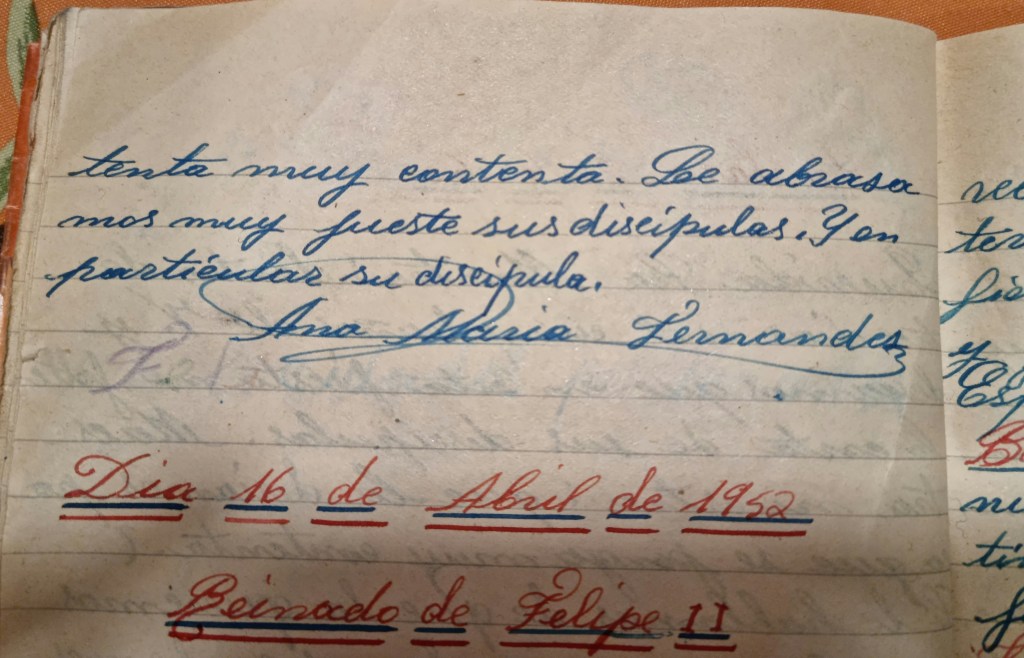 tenta muy contenta. Le abrasa
mos muy fueste sus discípulas. Y en
particular su discípula.
Ana Maria Fernandez
Dia 16 de Abril de 1952
Reinado de Felipe II
y
Esp